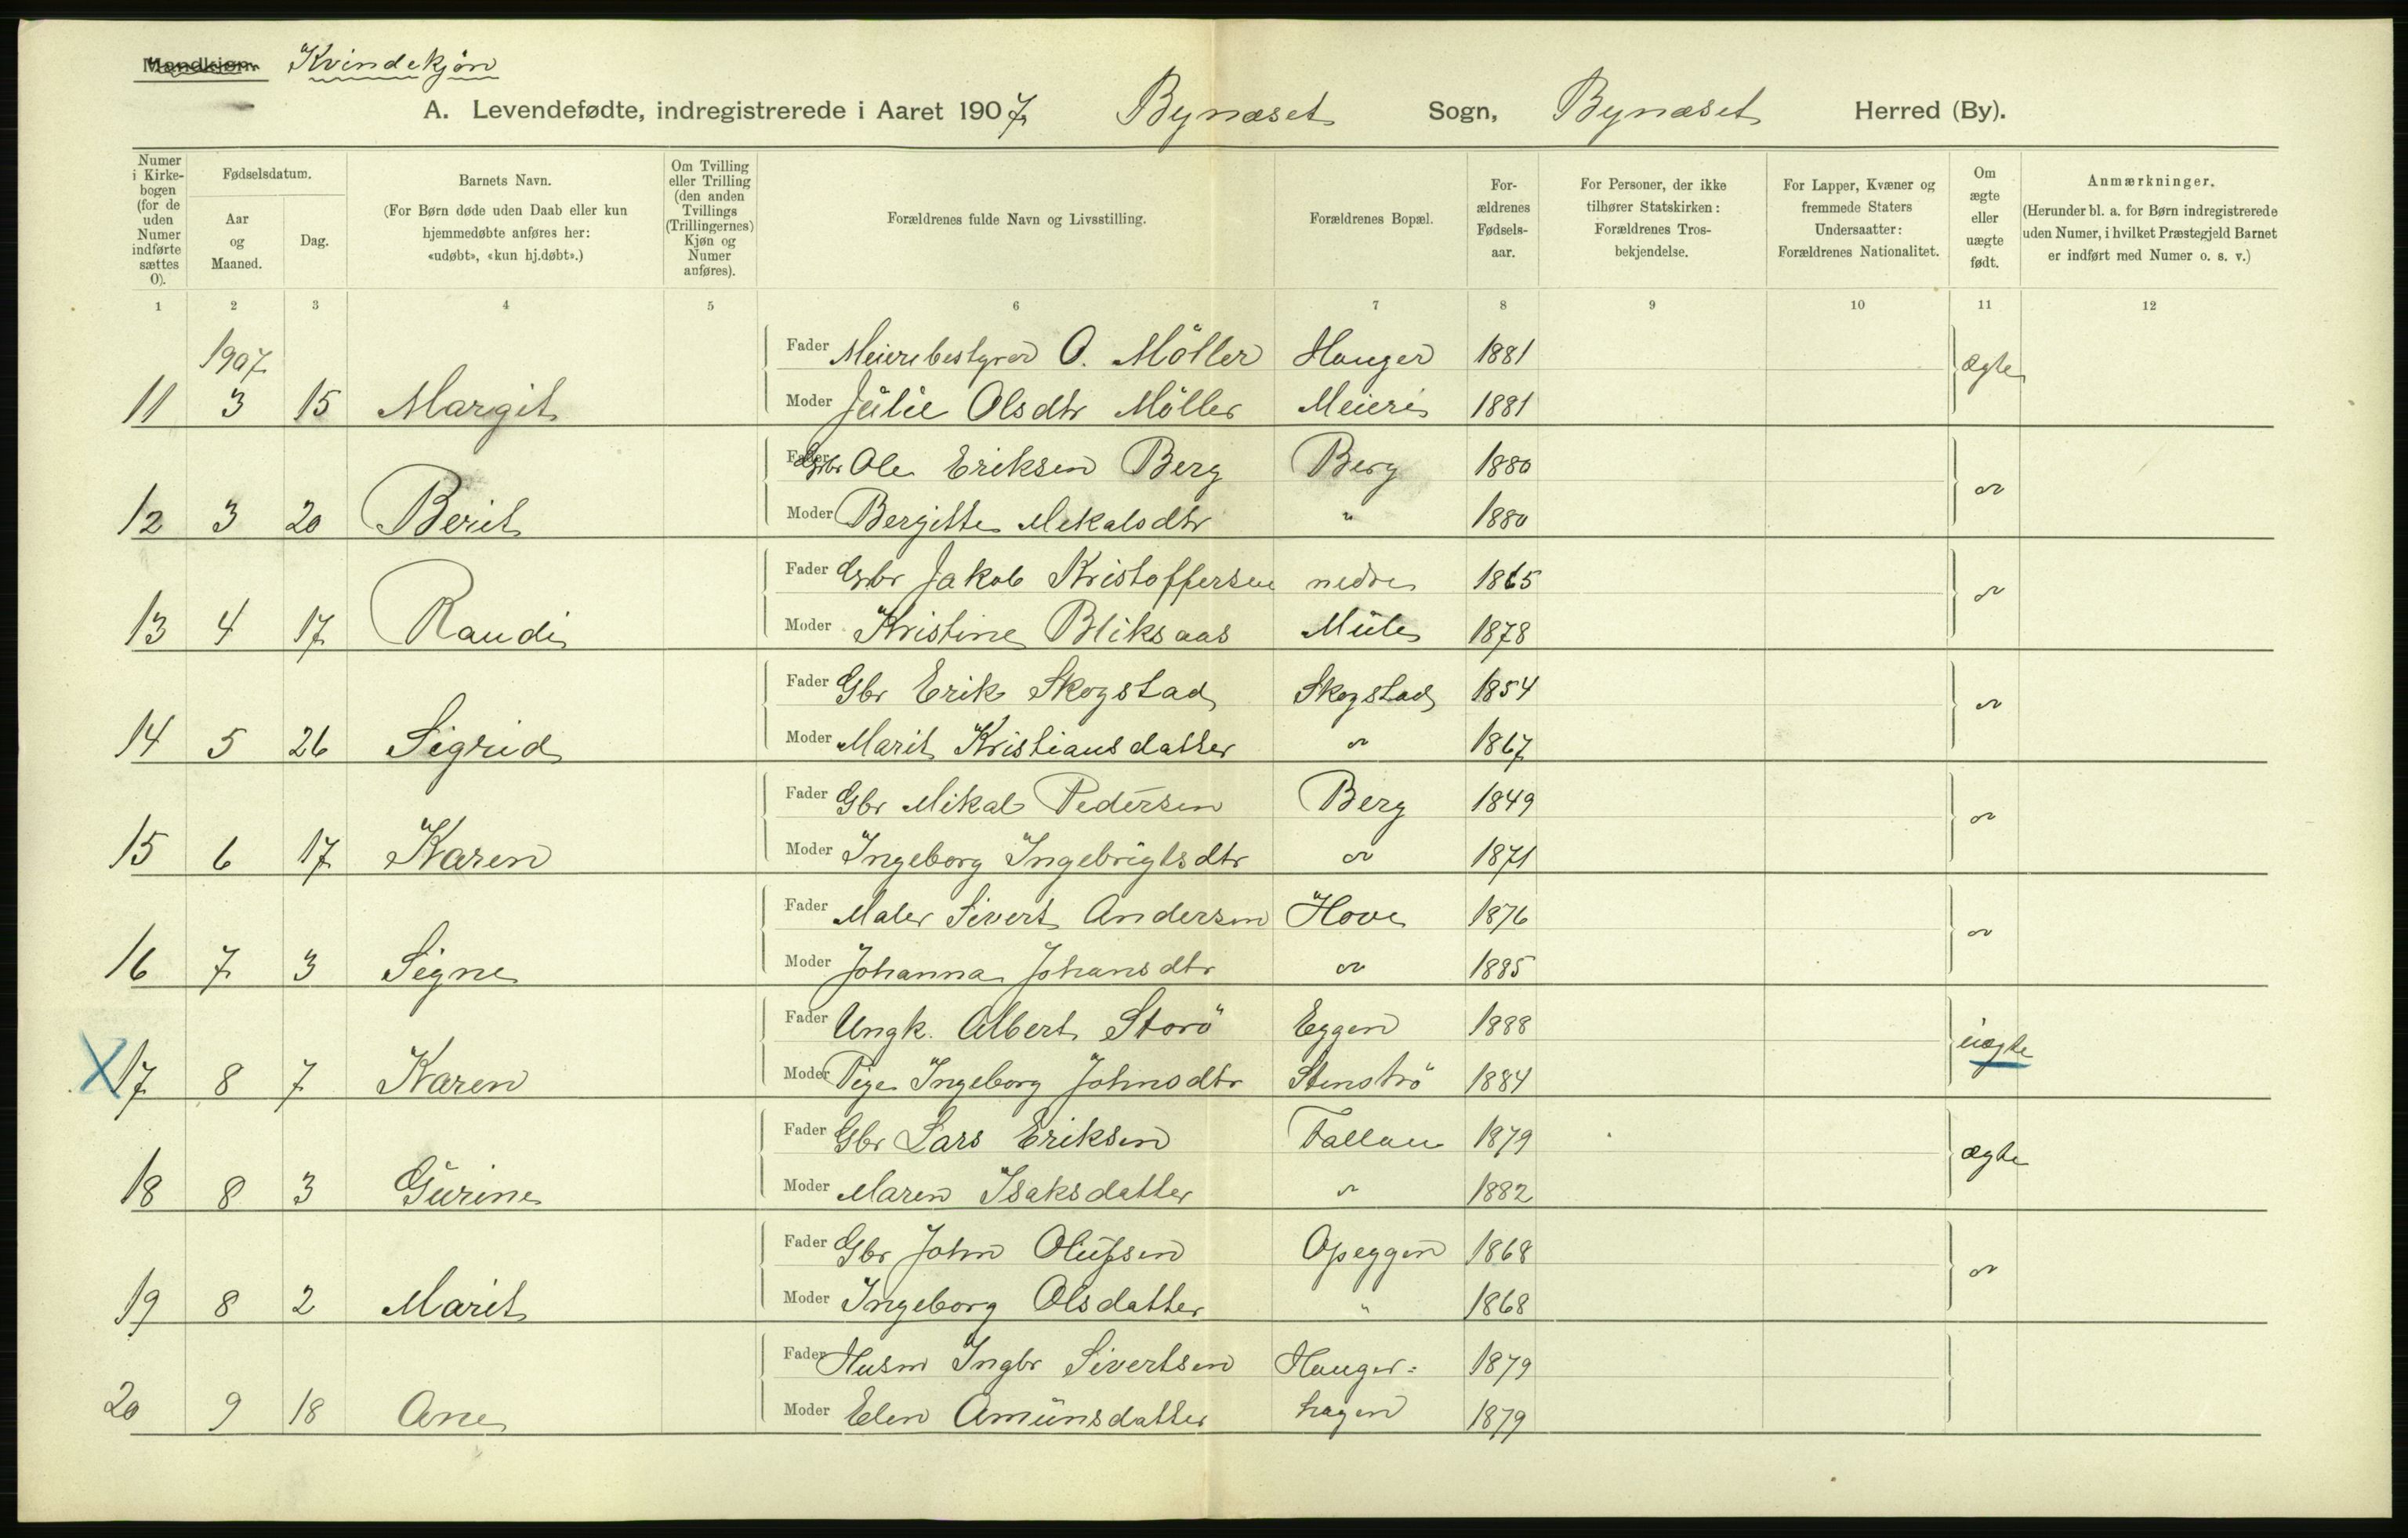 Mandkjøn. Kvindekjøn
A. Levendefødte, indregistrerede i Aaret 1907 Bynæset Sogn, Bynæset Herred (By).
Numer i Kirkebogen (for de uden Numer indførte sættes 0).
Fødselsdatum.
Aar og Maaned.
Dag.
Barnets Navn.
(For Børn døde uden Daab eller kun hjemmedøbte anføres her: «udøbt», «kun hj.døbt».)
Om Tvilling eller Trilling (den anden Tvillings (Trillingernes) Kjøn og Numer anføres).
Forældrenes fulde Navn og Livsstilling.
Forældrenes Bopæl.
Forældrenes Fødselsaar.
For Personer, der ikke tilhører Statskirken: Forældrenes Trosbekjendelse.
For Lapper, Kvæner og fremmede Staters Undersaatter: Forældrenes Nationalitet.
Om ægte eller uægte født.
Anmærkninger.
(Herunder bl. a. for Børn indregistrerede uden Numer, i hvilket Præstegjeld Barnet er indført med Numer o. s. v.)
1 2 3 4 5 6 7 8 9 10 11 12
1907
Fader Meieribestyrer O. Möller Hanger 1881 ægte
11 3 15 Margit Moder Julie Olsdtr Möller Meieri 1881
Fader Gbr Ole Eriksen Berg Berg 1880 "
12 3 20 Berit Moder Bergitte Mekalsdtr " 1880
Fader Gbr Jakob Kristoffersen nedre 1865 "
13 4 17 Randi Moder Kristine Bliksaas Mule 1878
Fader Gbr Erik Skogstad Skogstad 1854 "
14 5 26 Sigrid Moder Marit Kristiansdatter " 1867
Fader Gbr Mikal Pedersen Berg 1849 "
15 6 17 Karen Moder Ingeborg Ingebrigtsdtr " 1871
Fader Maler Sivert Andersen Hove 1876 "
16 7 3 Signe Moder Johanna Johansdtr " 1885
Fader Ungk. Albert Storö Eggen 1888 uægte
X 17 8 7 Karen Moder Pige Ingeborg Johnsdtr Stenströ 1884
Fader Gbr Lars Eriksen Fallan 1879 ægte
18 8 3 Gurine Moder Maren Isaksdatter " 1882
Fader Gbr John Olufsen Opeggen 1868 "
19 8 2 Marit Moder Ingeborg Olsdatter " 1868
Fader Husm Ingbr Sivertsen Hanger= 1879
20 9 18 Ane Moder Elen Amunsdatter hagen 1879